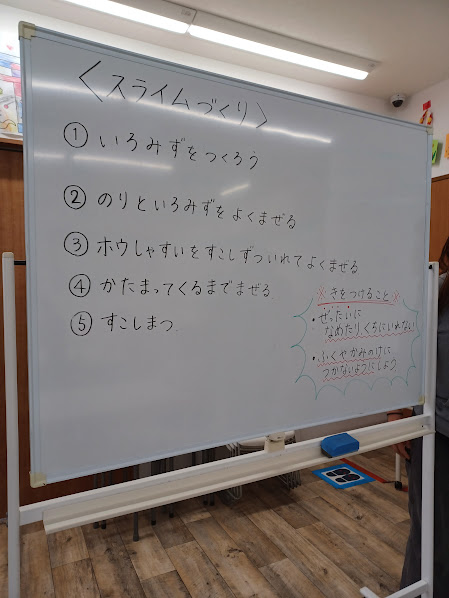 ＜スライムづくり＞
① いろみずをつくろう
② のりといろみずをよくまぜる
③ ホウしゃすいをすこしずついれてよくまぜる
④ かたまってくるまでまぜる
⑤ すこしまつ
※きをつけること※
・ぜったいに
なめたり、くちにいれない
・ふくやかみのけに
つかないようにしよう